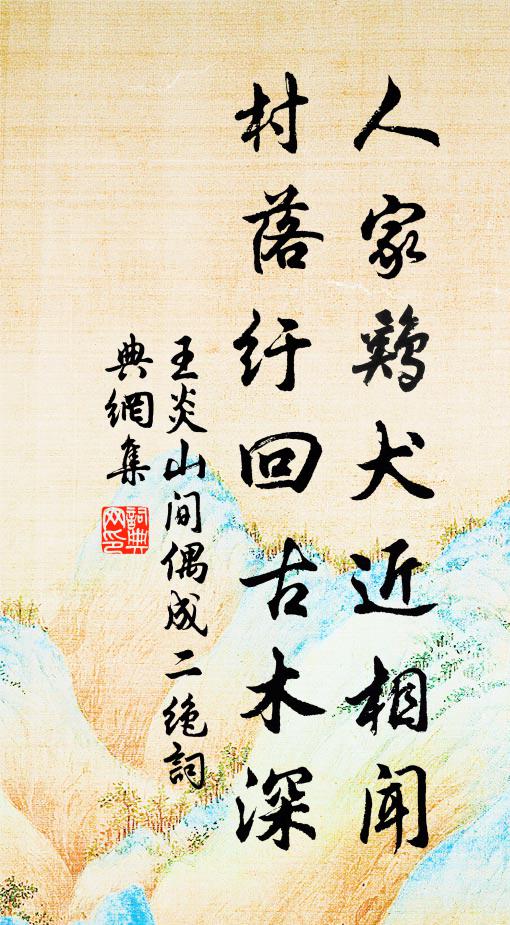 人家鷄犬近相聞
村落紆回古木深
王炎山间偶成二绝詞
典網集
詞典
网印